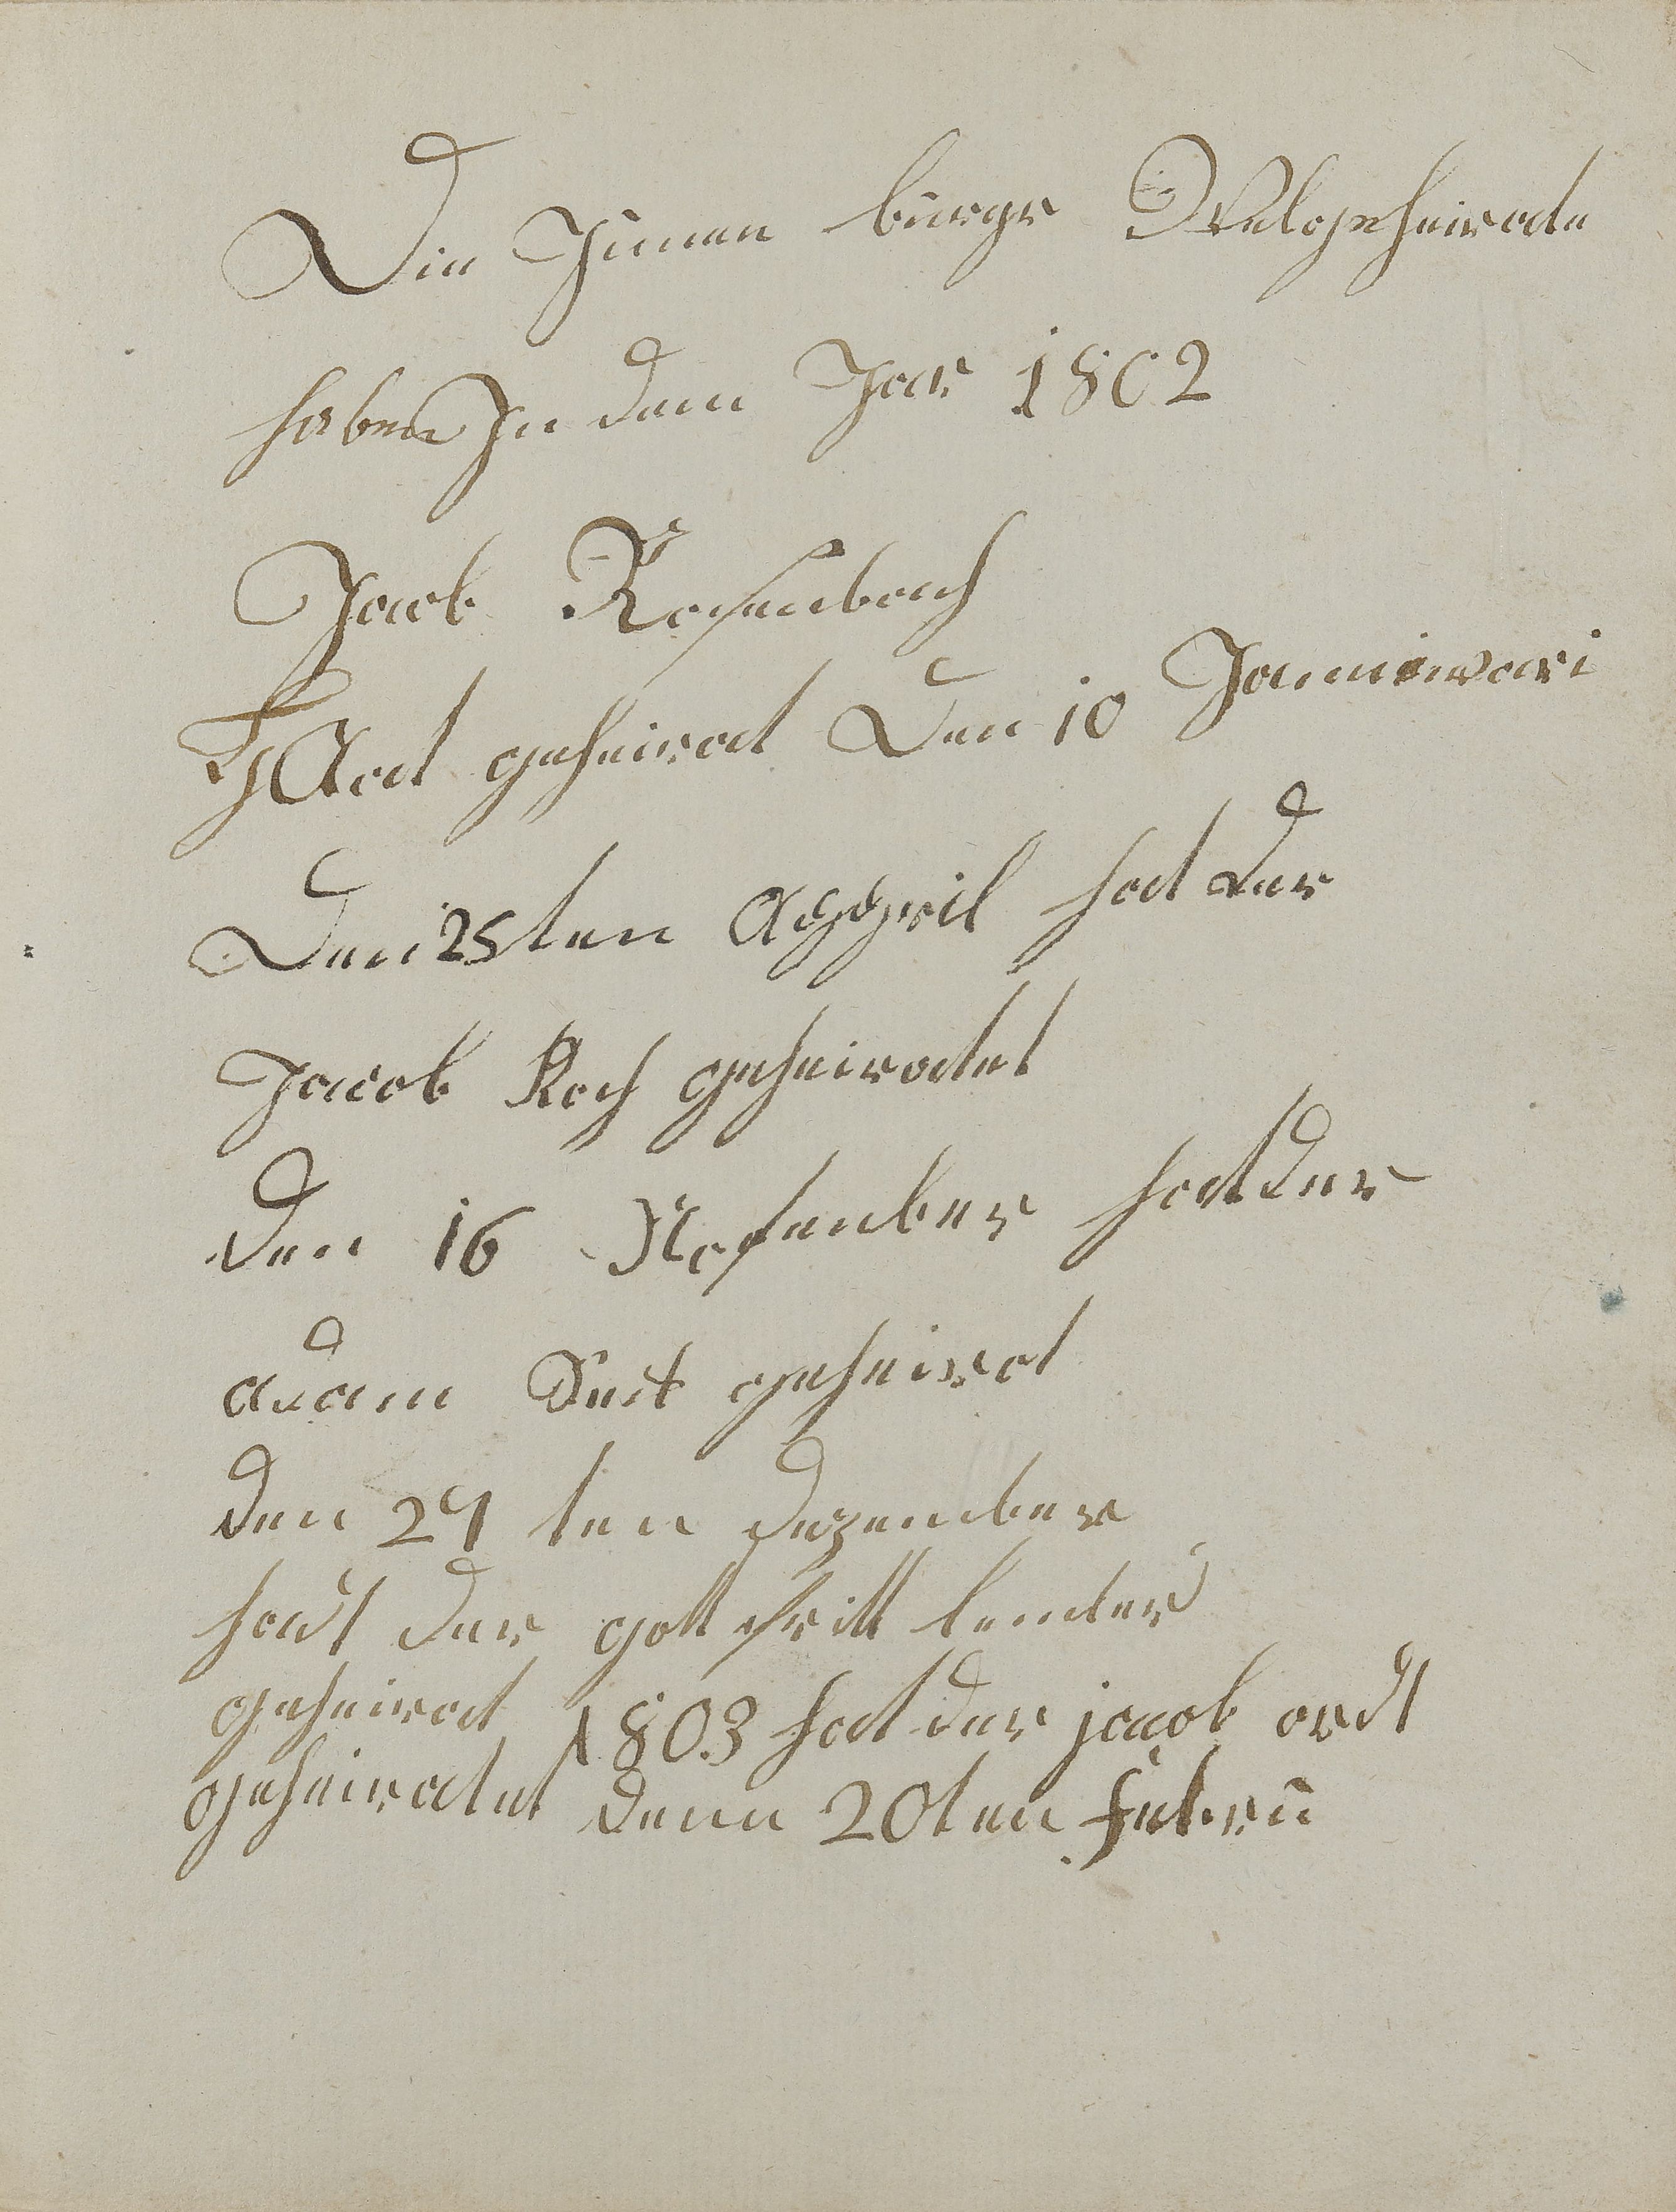 Die Jungen bürger Welgeheirate
haben In dem Jar 1802
Jacob Rosenbach
Haat geheirat Den 10 Januwari
Den 25 ten Appril hat der
Jacob Koch geheiratet
den 16 Nofember hat der
adam geheirat
den 24 ten dezember
hat der gottfritt
geheirat 1803 hat der jacob ordt
geheiratet denn 20ten Febru